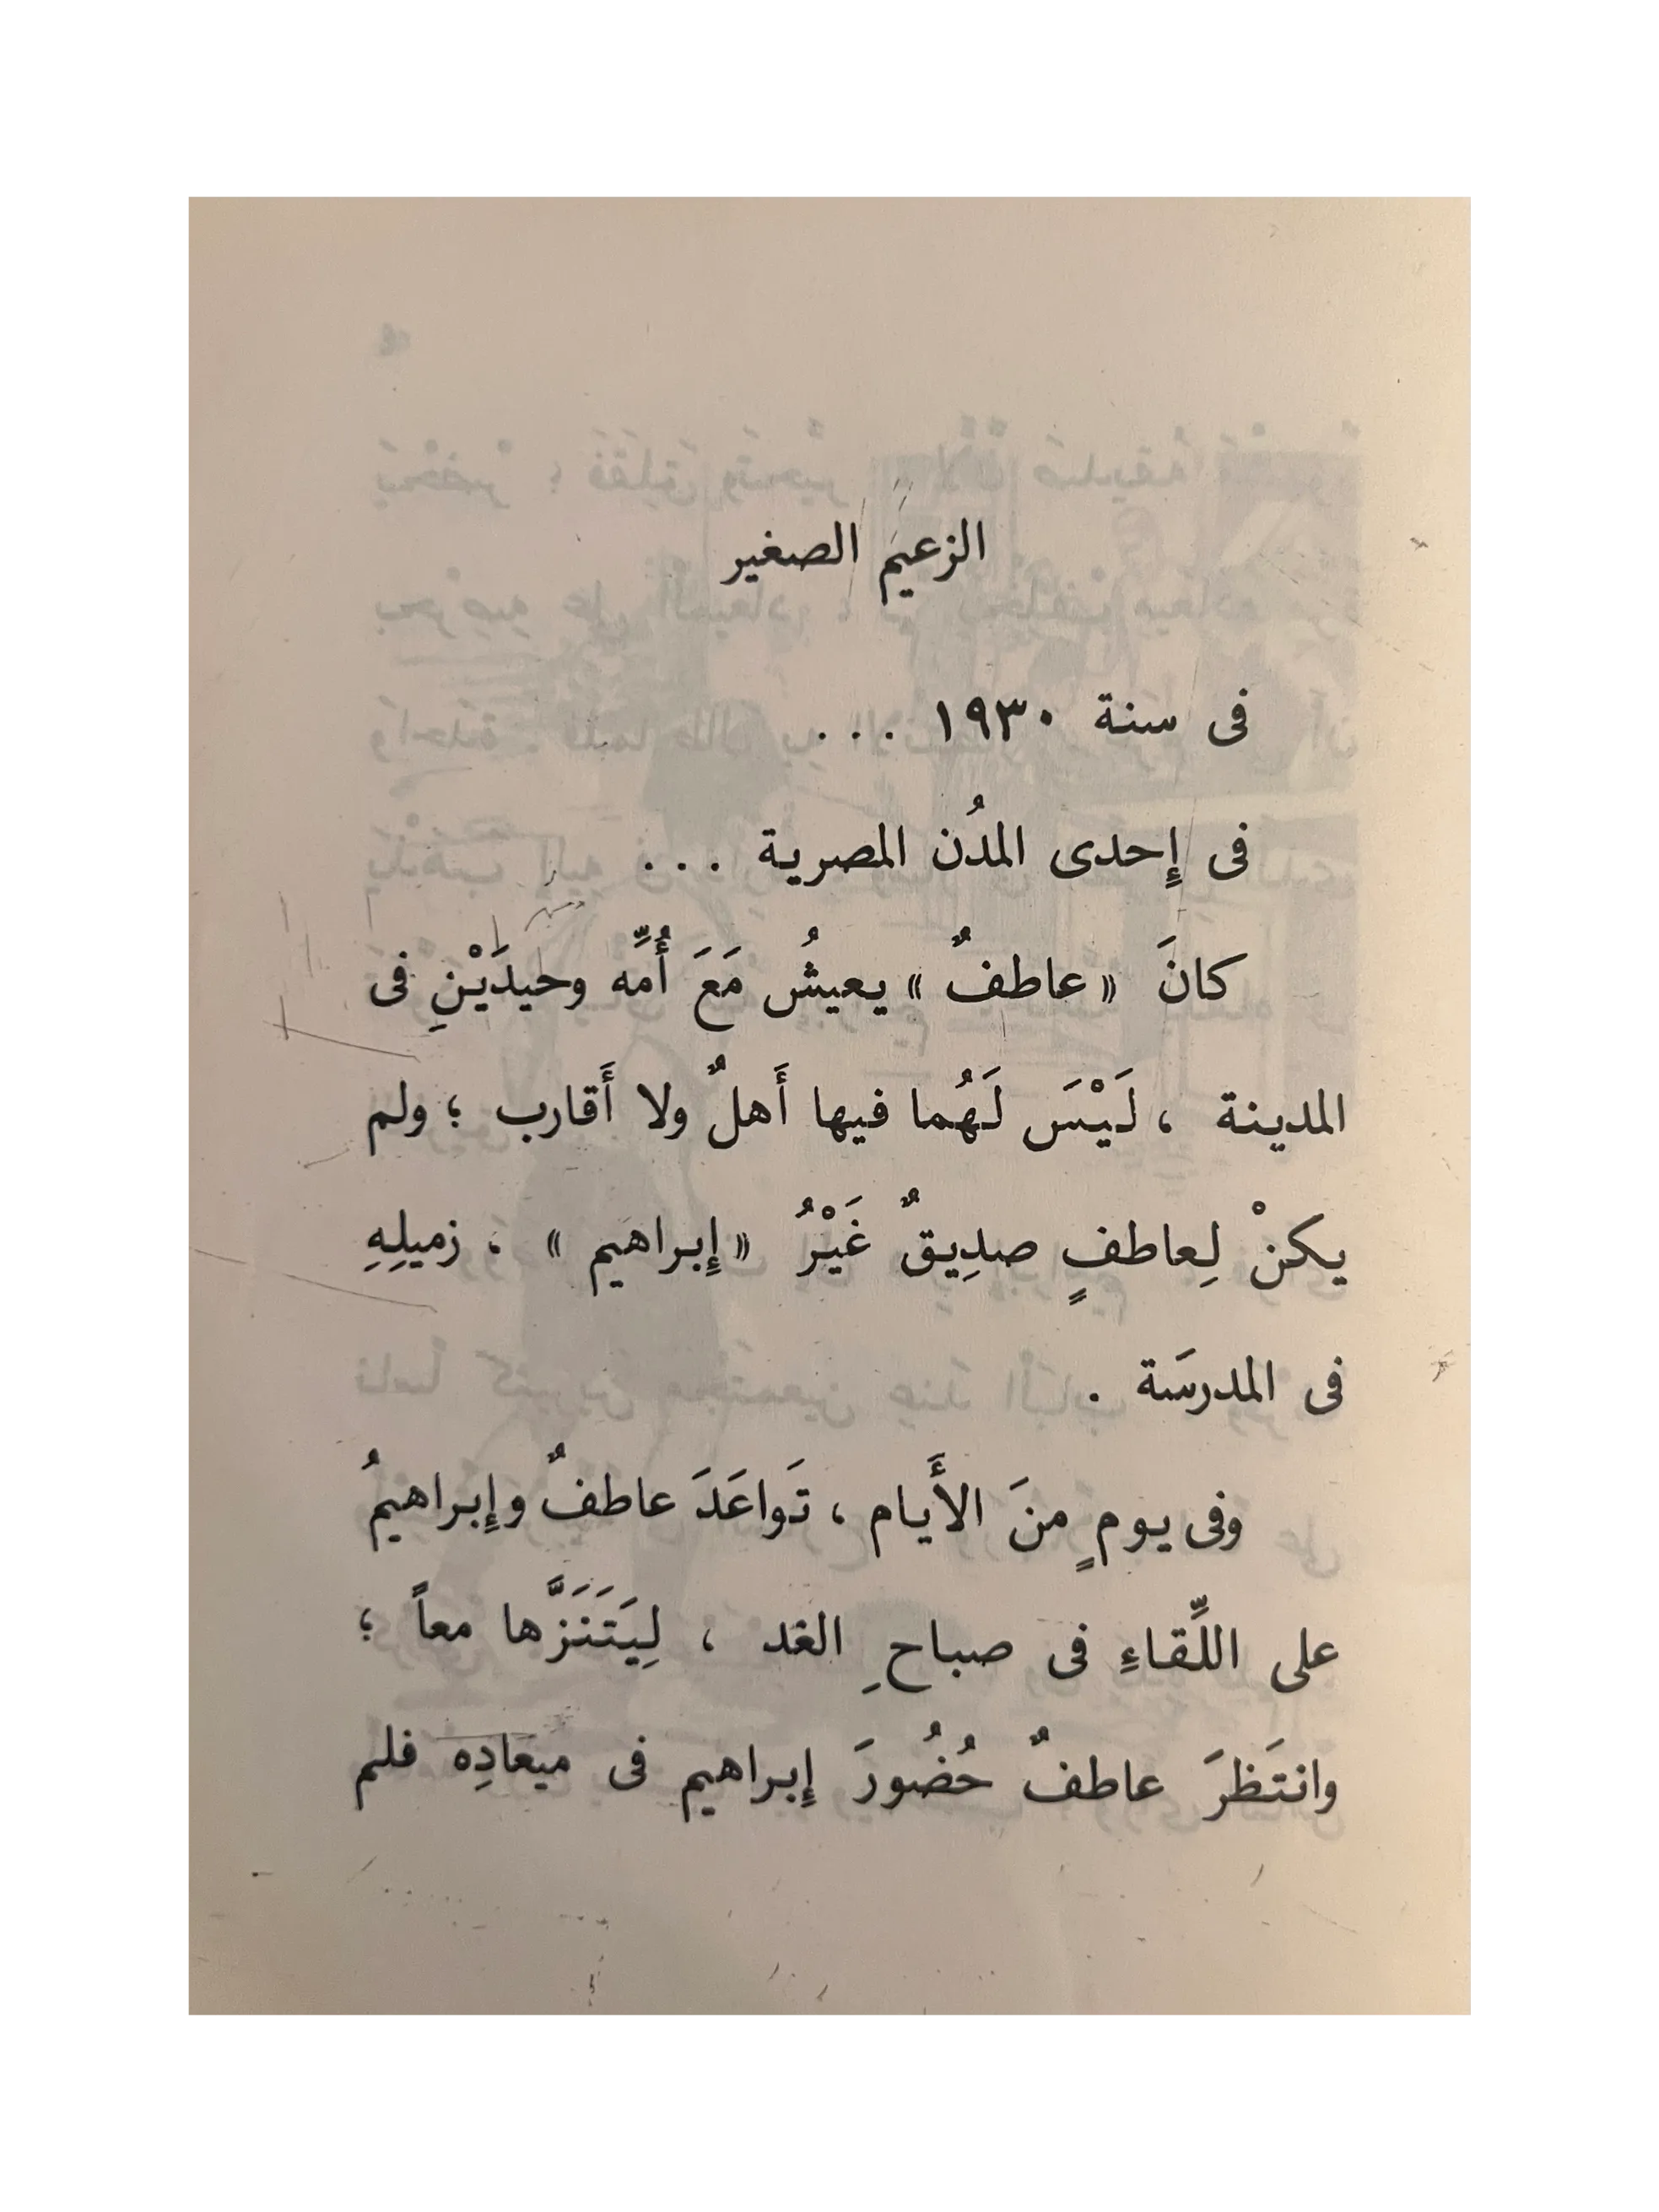 الزعيم الصغير
فى سنة ١٩٣٠ . . .
فى إِحدى المدُن المصرية . . .
كانَ «عاطفٌ» يعيشُ مَعَ أُمِّه وحيدَيْنِ فى
المدينة ، لَيْسَ لَهُما فيها أَهلٌ ولا أَقارب ؛ ولم
يكنْ لِعاطفٍ صدِيقٌ غَيْرُ «إِبراهيم» ، زميلِهِ
فى المدرسَة .
وفى يومٍ منَ الأَيام ، تَواعَدَ عاطفٌ وإِبراهيمُ
على اللِّقاءِ فى صباحِ الغد ، لِيَتَنَزَّها معاً ؛
وانتَظرَ عاطفٌ حُضُورَ إِبراهيم فى ميعادِه فلم